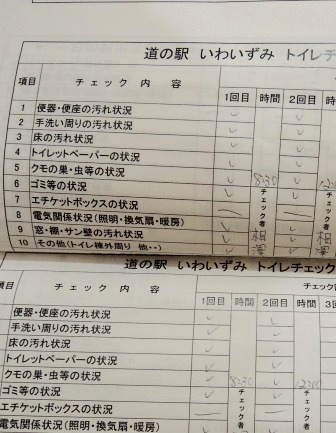 道の駅 いわいずみ トイレチェ
項目 チェック 内容 1回目 時間 2回目 時
1 便器・便座の汚れ状況
2 手洗い周りの汚れ状況
3 床の汚れ状況
4 トイレットペーパーの状況
5 クモの巣・虫等の状況 8:30
6 ゴミ等の状況 チェック者 チェック者
7 エチケットボックスの状況
8 電気関係状況(照明・換気扇・暖房)
9 窓・棚・サン壁の汚れ状況
10 その他(トイレ棟外周り 他・・)
道の駅 いわいずみ トイレチェック
項目 チェック
チェック 内容 1回目 時間 2回目 時間 3回
便器・便座の汚れ状況
手洗い周りの汚れ状況
床の汚れ状況
トイレットペーパーの状況
クモの巣・虫等の状況 8:30 12:00
ゴミ等の状況 チェック チェック
エチケットボックスの状況
電気関係状況(照明・換気扇・暖房)